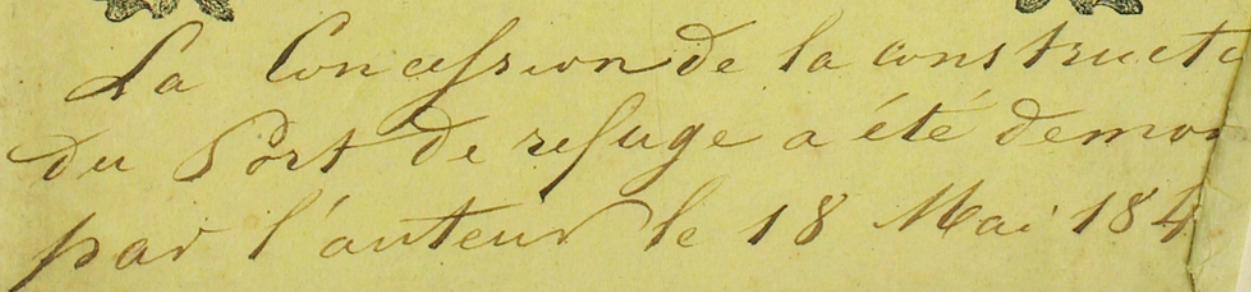 La Concession de la constructi
du Port de refuge a été deman
par l'auteur le 18 Mai 184